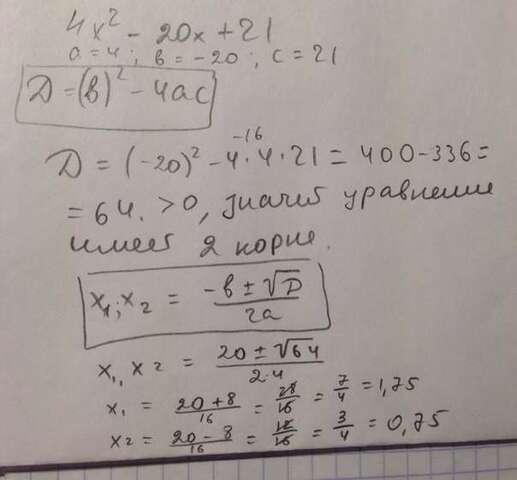 4x² - 20x + 21
a = 4; в = -20; c = 21
D = (в)² - 4ac
D = (-20)² - 4·4·21 = 400 - 336 =
-16
= 64. >0, значит уравнение
имеет 2 корня.
x₁; x₂ = (-в ± √D)/(2a)
x₁, x₂ = (20 ± √64)/(2·4)
x₁ = (20 + 8)/16 = 28/16 = 7/4 = 1,75
x₂ = (20 - 8)/16 = 12/16 = 3/4 = 0,75